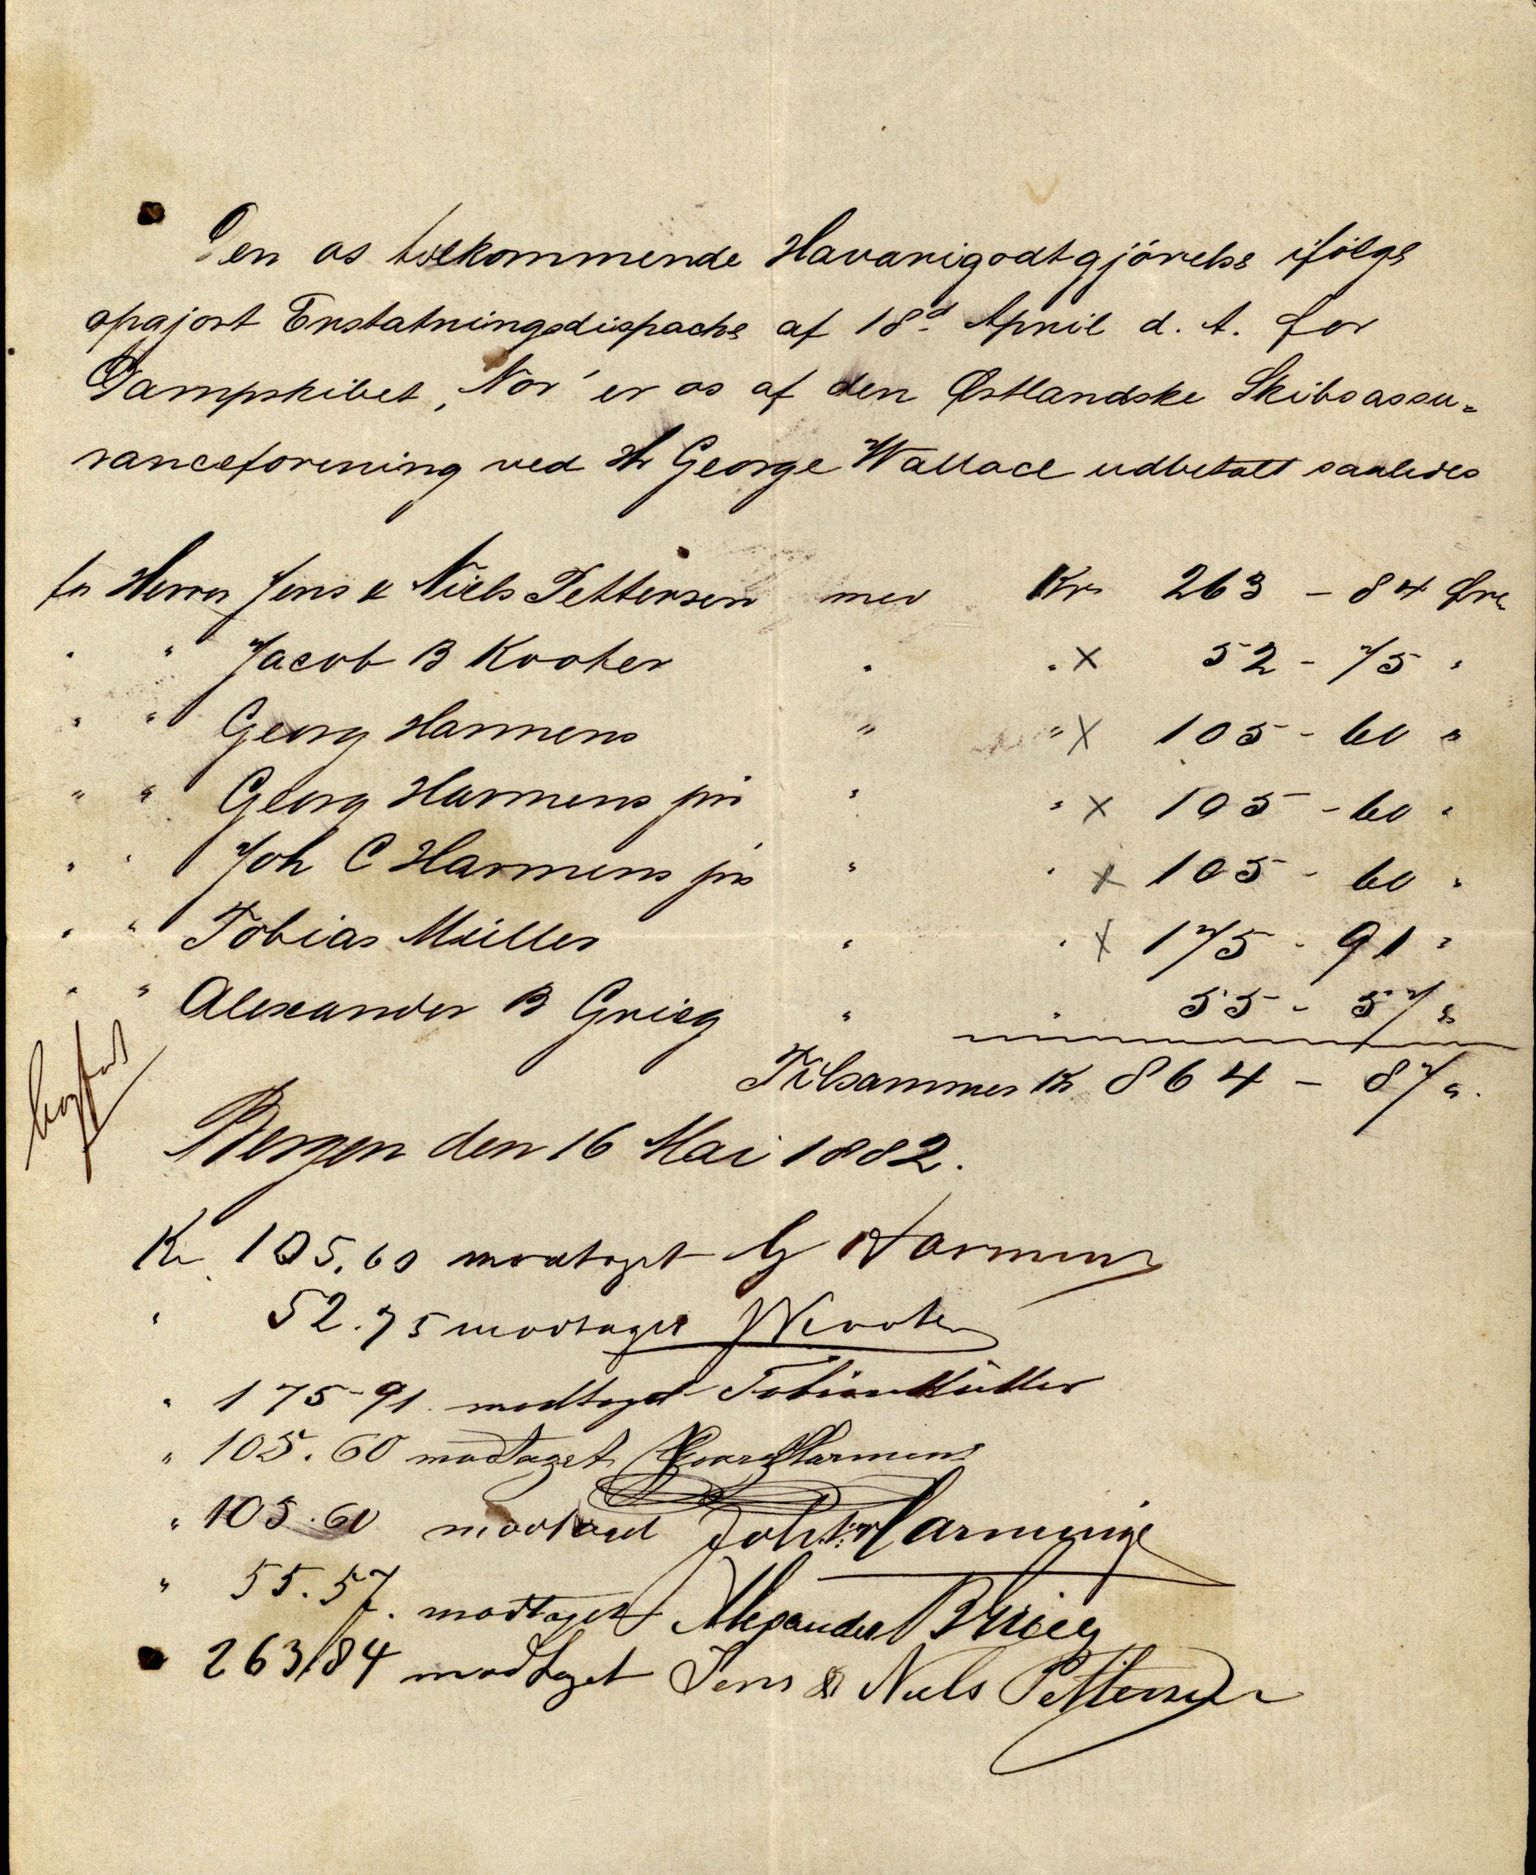 Den os tilkommende Havarigodtgjörelse ifölge
opgjort Erstatningsdispache af 18d April d. A. for
Dampskibet „Nor" er os af den Østlandske Skibsassu-
ranceforening ved Hr George Wallace udbetalt saaledes
til Herrer Jens & Niels Pettersen med Kr 263 - 84 Øre
" " Jacob B Kooter " " X 52 - 75 "
" " Georg Harmens " " X 105 - 60 "
" " Georg Harmens jür " " X 105 - 60 "
" " Joh C Harmens jür " " X 105 - 60 "
" " Tobias Müller " " X 175 - 91 "
" " Alexander B Grieg " " 55 - 57 "
Tilsammen Kr 864 - 87 "
Bergen den 16 Mai 1882.
Kr. 105.60 modtaget G Harmens
" 52.75 modtaget J Kooter
" 175-91 modtaget Tobias Müller
" 105.60 modtaget Georg Harmens
" 105.60 modtaget Harmens
" 55.57. modtaget Alexander B Grieg
" 263/84 modtaget Jens & Niels Pettersen